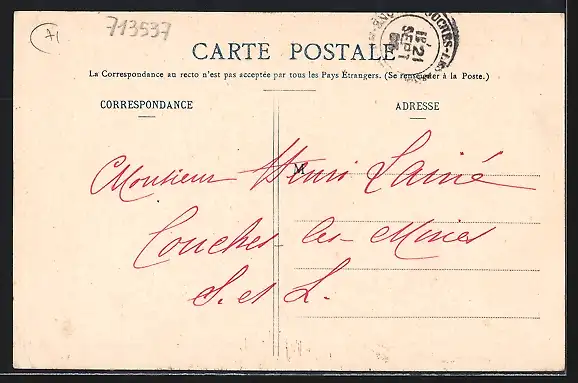 713537
CARTE POSTALE
La Correspondance au recto n'est pas acceptée par tous les Pays Étrangers. (Se renseigner à la Poste.)
CORRESPONDANCE
ADRESSE
M
Monsieur Henri Lainé
Couches-les-Mines
S. et L.